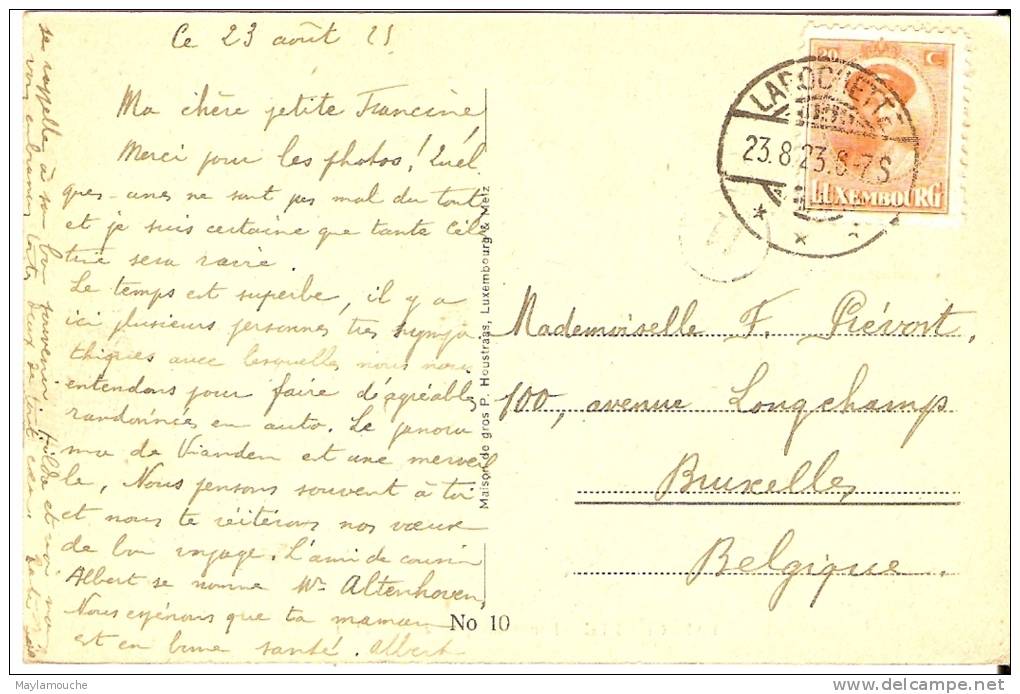 Ce 23 août 23
Ma chère petite Francine
Merci pour les photos ! Quel
ques-unes ne sont pas mal du tout
et je suis certaine que tante Céles
tine sera ravie.
Le temps est superbe, il y a
ici plusieurs personnes très sympa
thiques avec lesquelles nous nous
entendons pour faire d'agréables
randonnées en auto. Le panora
ma de Vianden est une merveil
le, Nous pensons souvent à toi
et nous te réitérons nos vœux
de bon voyage. L'ami de cousin
Albert se nomme Mr Altenhoven
Nous espérons que ta maman
est en bonne santé. Albert
se rappelle à son bon souvenir
vous embrassons toutes deux de tout cœur.
Maison de gros P. Houstraas, Luxembourg & Metz
No 10
20 C
LUXEMBOURG
LAROCHETTE
23.8.23.6-7S
Mademoiselle F. Piévort,
100, avenue Longchamp
Bruxelles
Belgique.
Maylamouche
© delcampe.net